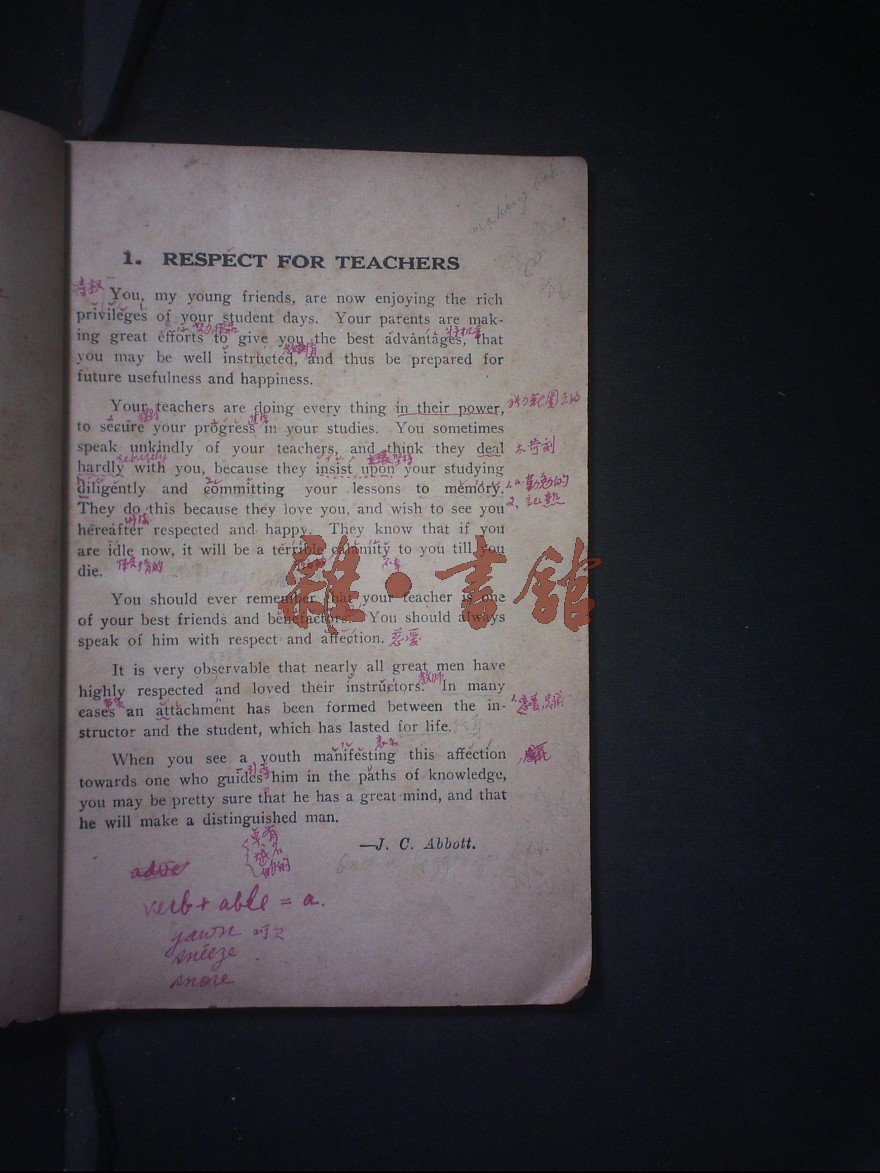 1. RESPECT FOR TEACHERS
You, my young friends, are now enjoying the rich
privileges of your student days. Your parents are mak-
ing great efforts to give you the best advantages, that
you may be well instructed, and thus be prepared for
future usefulness and happiness.
Your teachers are doing every thing in their power,
to secure your progress in your studies. You sometimes
speak unkindly of your teachers, and think they deal
不苛刻
severely
hardly with you, because they insist upon your studying
diligently and committing your lessons to memory.
They do this because they love you, and wish to see you
hereafter respected and happy. They know that if you
are idle now, it will be a terrible calamity to you till you
die.
You should ever remember that your teacher is one
of your best friends and benefactors. You should always
speak of him with respect and affection.
It is very observable that nearly all great men have
教師
highly respected and loved their instructors. In many
cases an attachment has been formed between the in-
structor and the student, which has lasted for life.
When you see a youth manifesting this affection
towards one who guides him in the paths of knowledge,
you may be pretty sure that he has a great mind, and that
he will make a distinguished man.
—J. C. Abbott.
verb + able = a.
yawn 呵欠
sneeze
snore
雜·書館